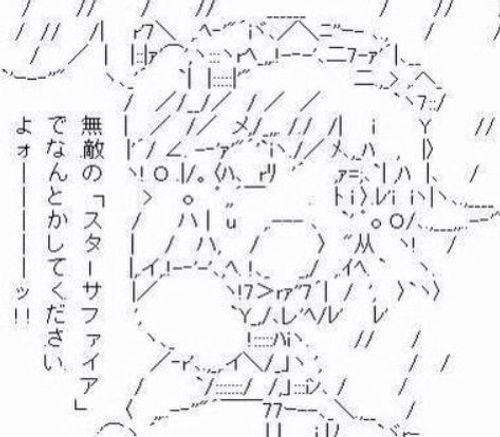 無敵の「スターサファイア」
でなんとかしてください
よォーーーーーッ!!